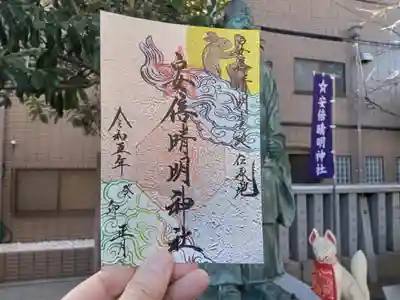 安倍晴明神社
令和五年
癸卯 正月
☆安倍晴明神社